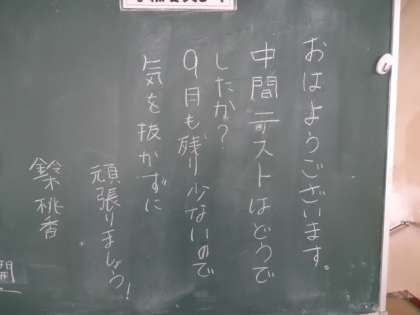 おはようございます。
中間テストはどうで
したか?
9月も残り少ないので
気を抜かずに
頑張りましょう!
鈴桃香